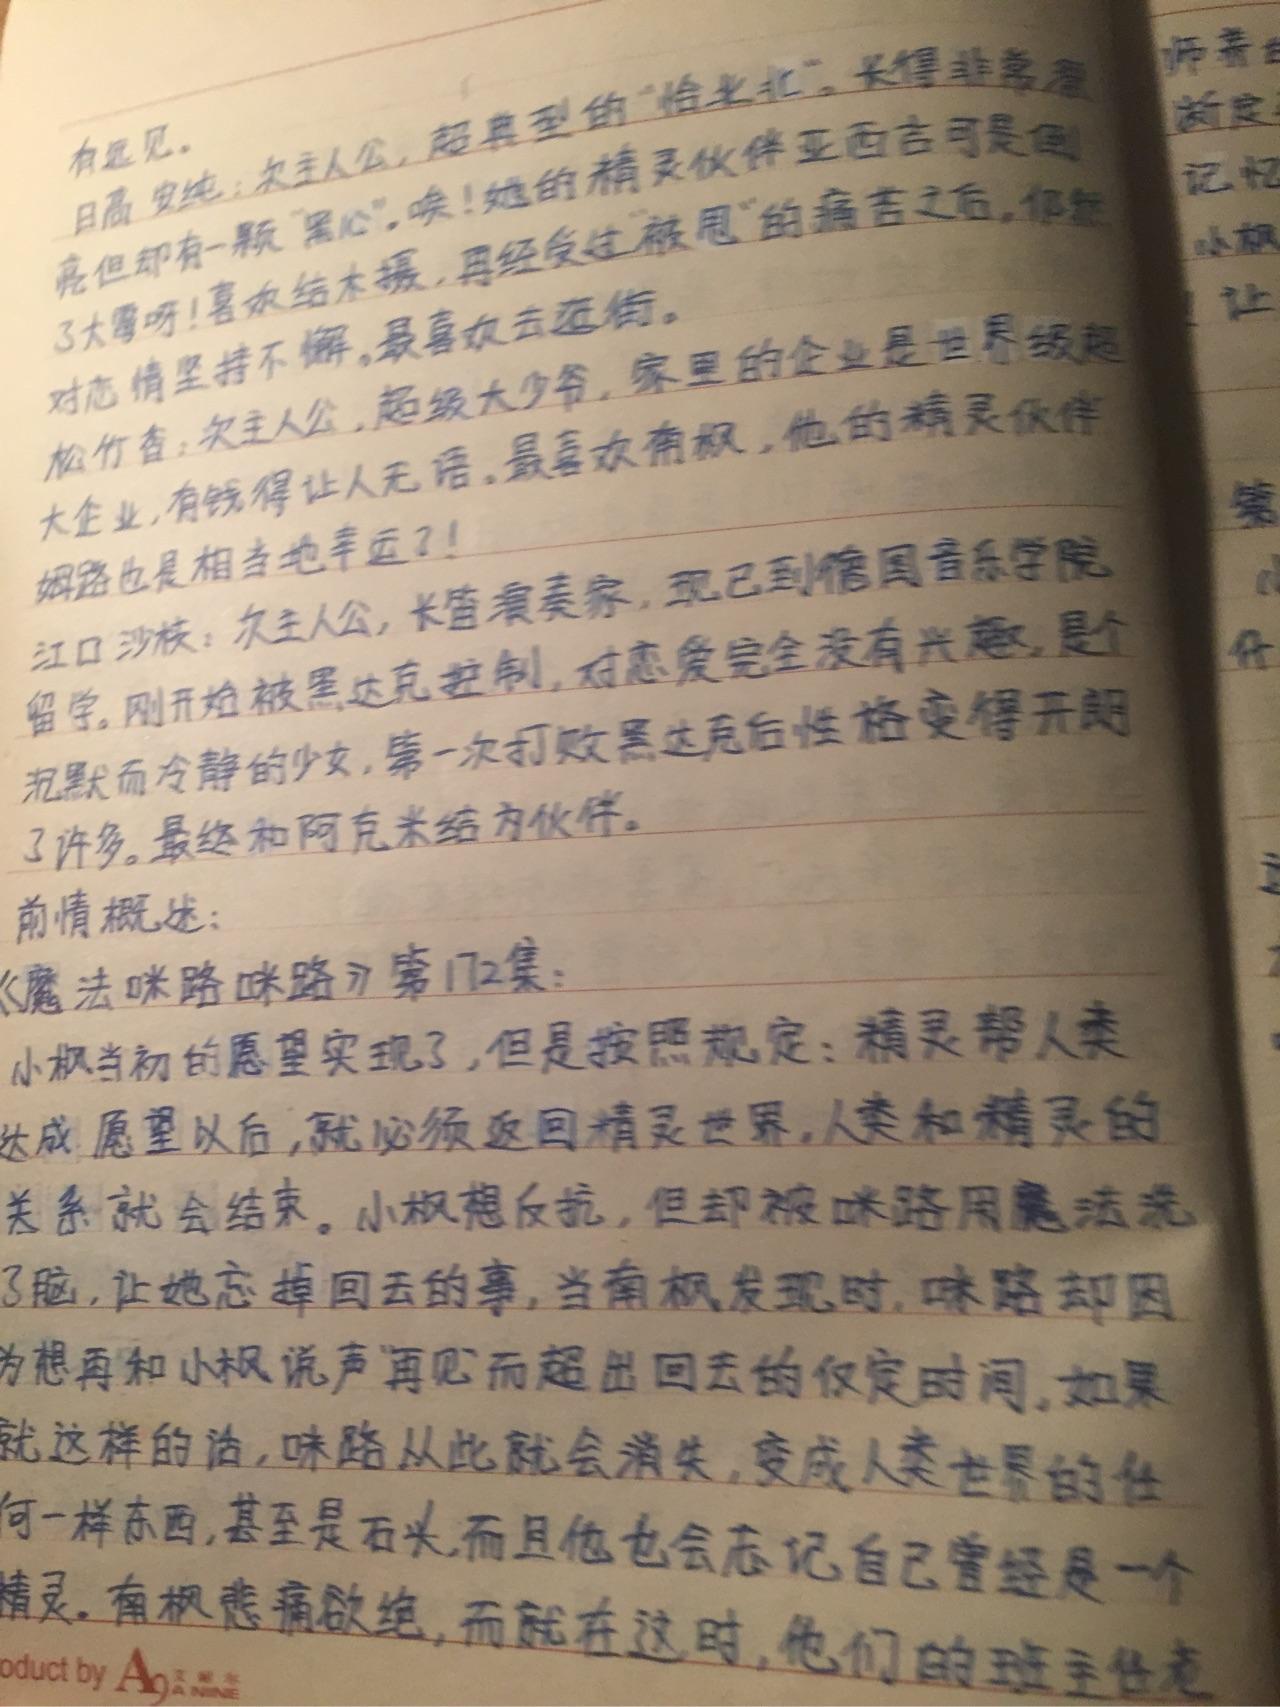 有远见。
日高 安纯：次主人公，超典型的“恰北北”。长得非常漂
亮但却有一颗“黑心”。唉！她的精灵伙伴亚西吉可是倒
了大霉呀！喜欢结木摄，再经受过“被甩”的痛苦之后，仍然
对恋情坚持不懈。最喜欢去逛街。
松竹香：次主人公，超级大少爷，家里的企业是世界级超
大企业，有钱得让人无语。最喜欢南枫，他的精灵伙伴
姆路也是相当地幸运了！
江口沙枝：次主人公，长笛演奏家，现已到德国音乐学院
留学。刚开始被黑达克控制，对恋爱完全没有兴趣，是个
沉默而冷静的少女，第一次打败黑达克后性格变得开朗
了许多。最终和阿克米结为伙伴。
前情概述：
《魔法咪路咪路》第172集：
小枫当初的愿望实现了，但是按照规定：精灵帮人类
达成愿望以后，就必须返回精灵世界，人类和精灵的
关系就会结束。小枫想反抗，但却被咪路用魔法洗
了脑，让她忘掉回去的事，当南枫发现时，咪路却因
为想再和小枫说声“再见”而超出回去的仪定时间，如果
就这样的话，咪路从此就会消失，变成人类世界的任
何一样东西，甚至是石头，而且他也会忘记自己曾经是一个
精灵。南枫悲痛欲绝，而就在这时，他们的班主任老
oduct by A9 艾耐尔
A NINE
师养
断定
记忆
小枫
让
第
小
什